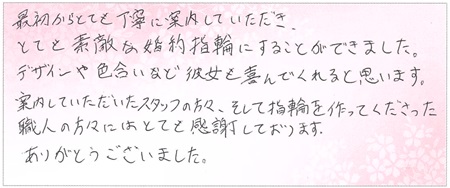 最初からとても丁寧に案内していただき、
とても素敵な婚約指輪にすることができました。
デザインや色合いなど彼女も喜んでくれると思います。
案内していただいたスタッフの方々、そして指輪を作ってくださった
職人の方々にはとても感謝しております。
ありがとうございました。